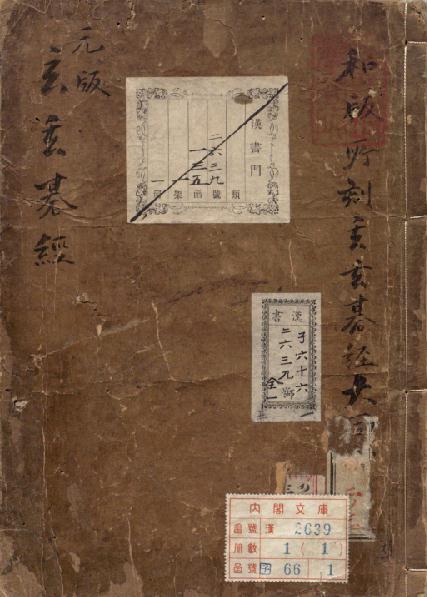 元版
玄玄碁經
和版所刻玄玄碁經大同
漢書門
類
二六三九號
一三五函
一架
一冊
漢書
子六十六
二六三九號
全一
内閣文庫
番號 漢 2639
冊數 1 (1)
函號 子 66 1